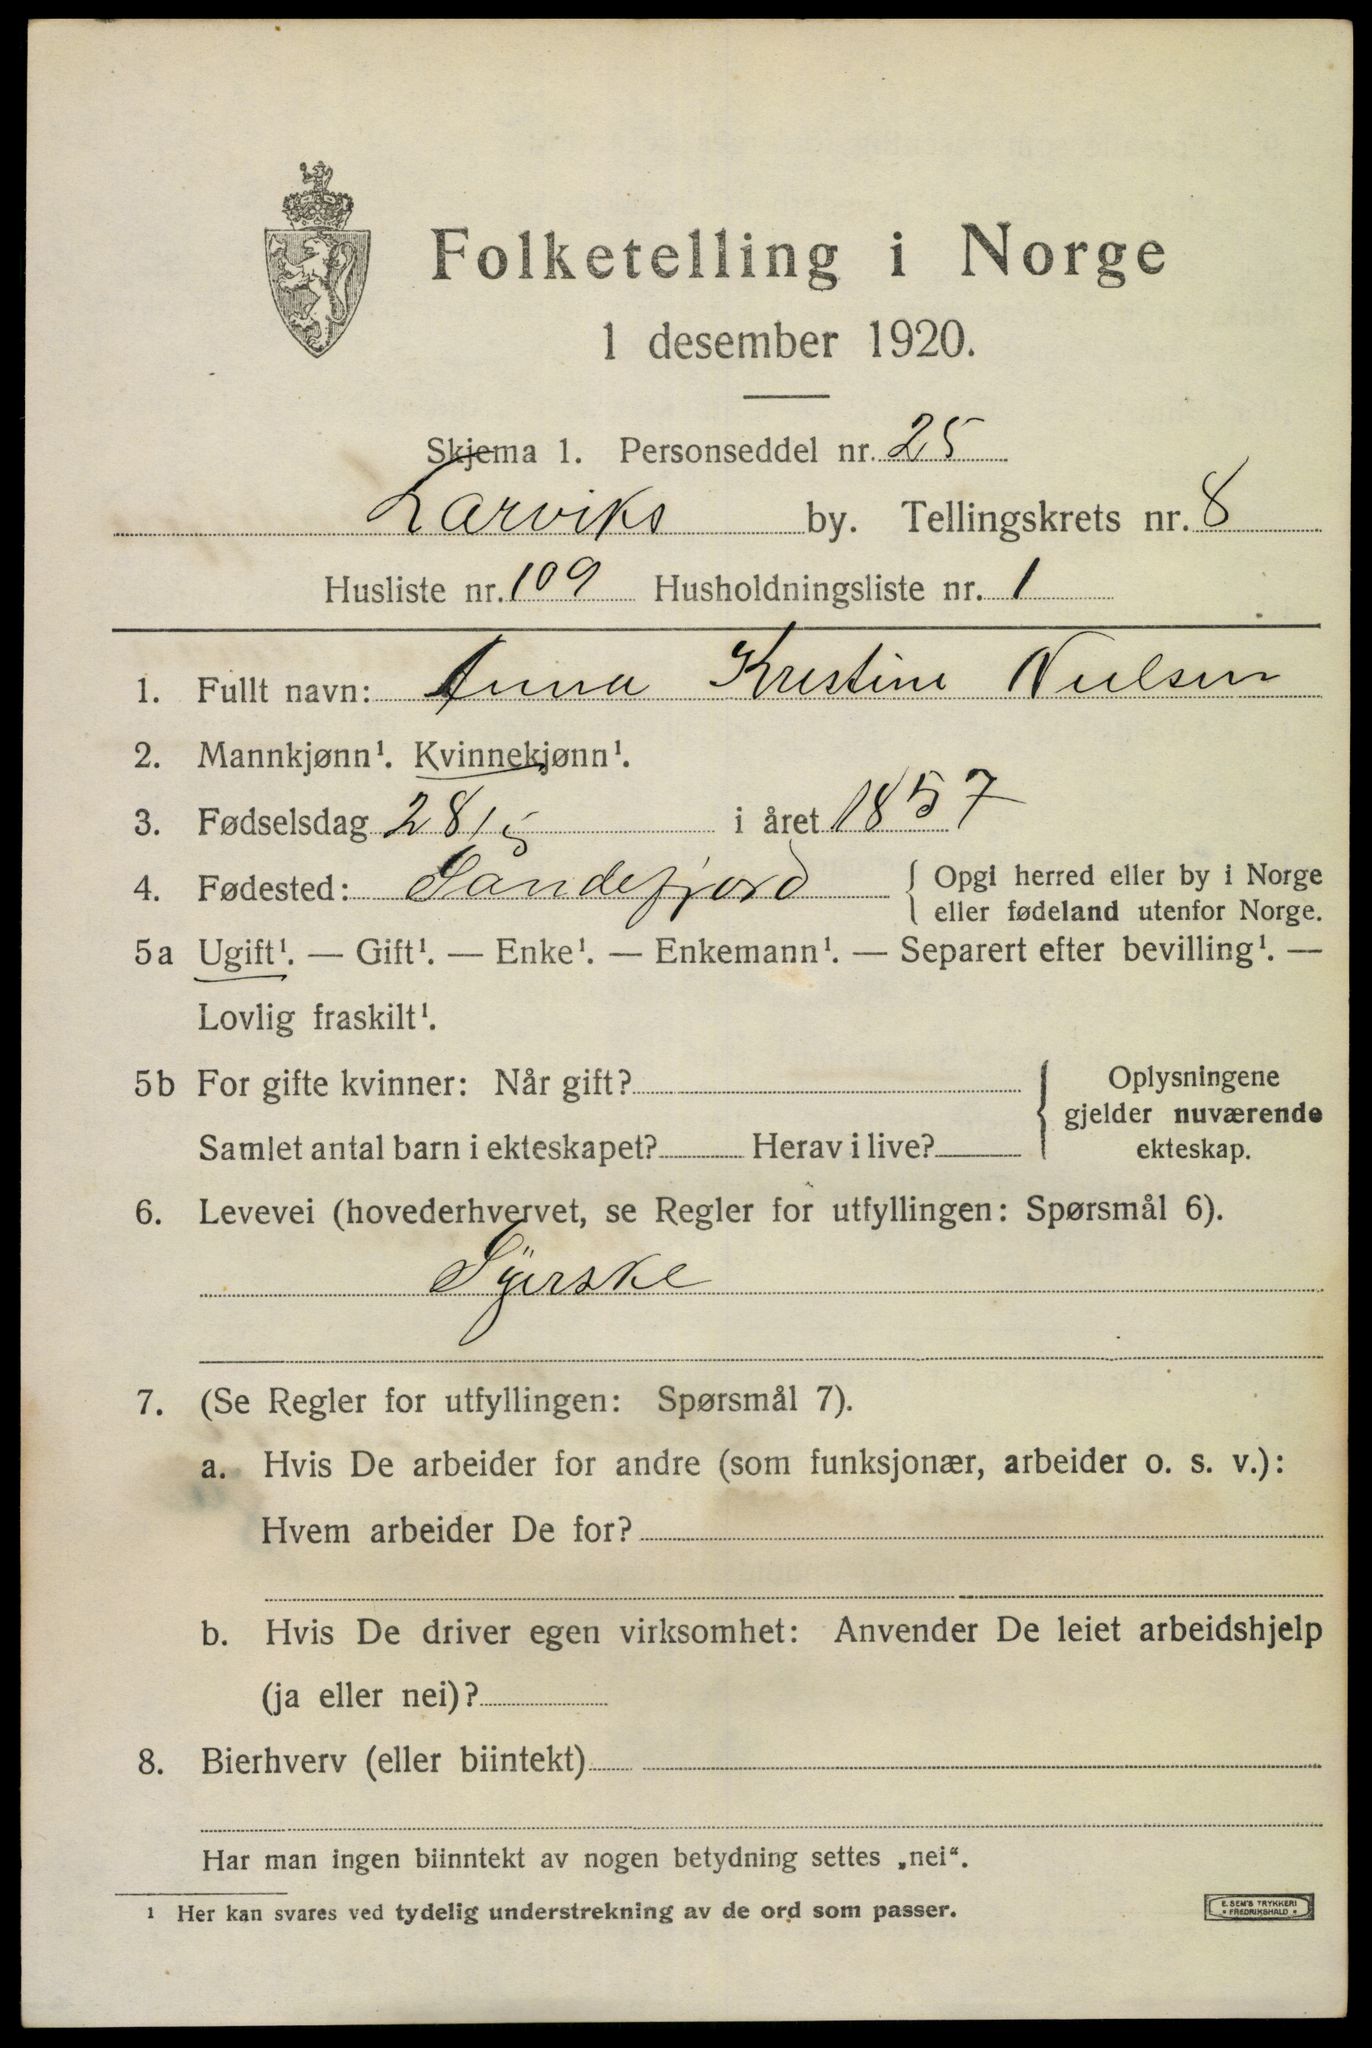 Folketelling i Norge
1 desember 1920.
Skjema 1. Personseddel nr. 25
Larviks by. Tellingskrets nr. 8
Husliste nr. 109 Husholdningsliste nr. 1
1. Fullt navn: Anna Kristine Nielsen
2. Mannkjønn¹. Kvinnekjønn¹.
3. Fødselsdag 28/5 i året 1857
4. Fødested: Sandefjord { Opgi herred eller by i Norge
eller fødeland utenfor Norge.
5a Ugift¹. — Gift¹. — Enke¹. — Enkemann¹. — Separert efter bevilling¹. —
Lovlig fraskilt¹.
5b For gifte kvinner: Når gift? { Oplysningene
gjelder nuværende
Samlet antal barn i ekteskapet? Herav i live? ekteskap.
6. Levevei (hovederhvervet, se Regler for utfyllingen: Spørsmål 6).
Syerske
7. (Se Regler for utfyllingen: Spørsmål 7).
a. Hvis De arbeider for andre (som funksjonær, arbeider o. s. v.):
Hvem arbeider De for?
b. Hvis De driver egen virksomhet: Anvender De leiet arbeidshjelp
(ja eller nei)?
8. Bierhverv (eller biintekt)
Har man ingen biinntekt av nogen betydning settes „nei“.
¹ Her kan svares ved tydelig understrekning av de ord som passer.
E. SEM'S TRYKKERI
FREDRIKSHALD